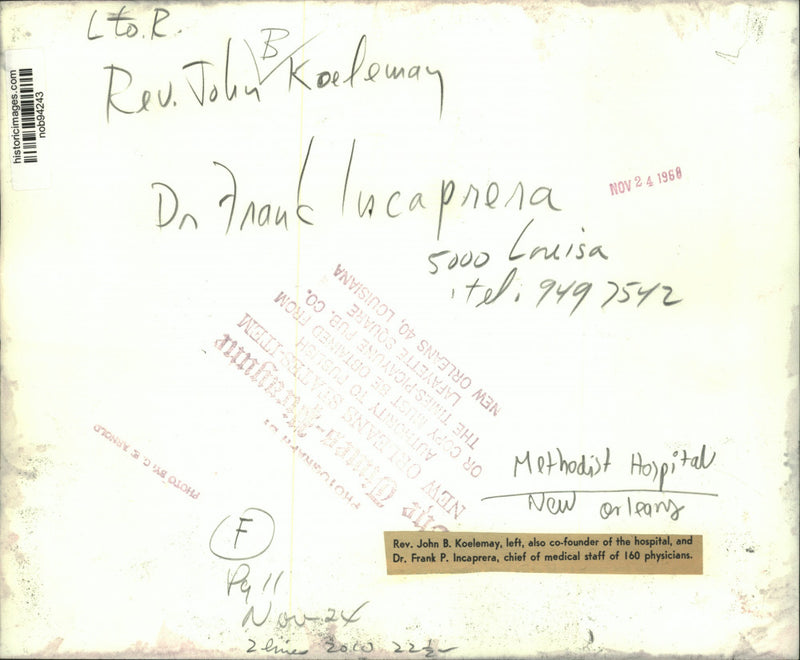 L to. R.
Rev. John B Koelemay
historicimages.com
nob94243
Dr Frank Incaprera
NOV 24 1968
5000 Louisa
tel. 949 7542
PHOTOGRAPH BY
The Times-Picayune
NEW ORLEANS STATES-ITEM
AUTHORITY TO PUBLISH FROM
OR COPY MUST BE OBTAINED
THE TIMES-PICAYUNE PUB. CO.
LAFAYETTE SQUARE
NEW ORLEANS 40, LOUISIANA
PHOTO BY: G. E. ARNOLD
Methodist Hospital
New Orleans
F
Rev. John B. Koelemay, left, also co-founder of the hospital, and
Dr. Frank P. Incaprera, chief of medical staff of 160 physicians.
Pg 11
Nov-24
2 lines 22½